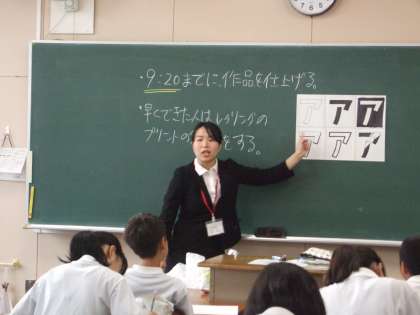 ・9:20までに、作品を仕上げる。
・早くできた人はレタリングの
プリントの
をする。
ア ア ア
ア ア ア